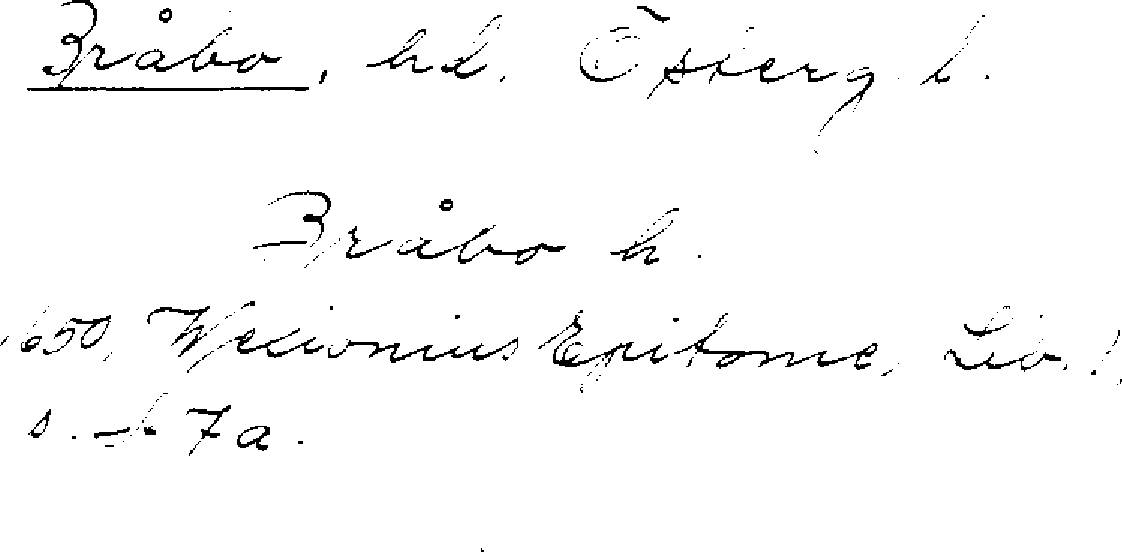 Bråbo, hd. Östergl.
Bråbo h.
1650, Wexionius Epitome, Lib. 1,
s. 7a.